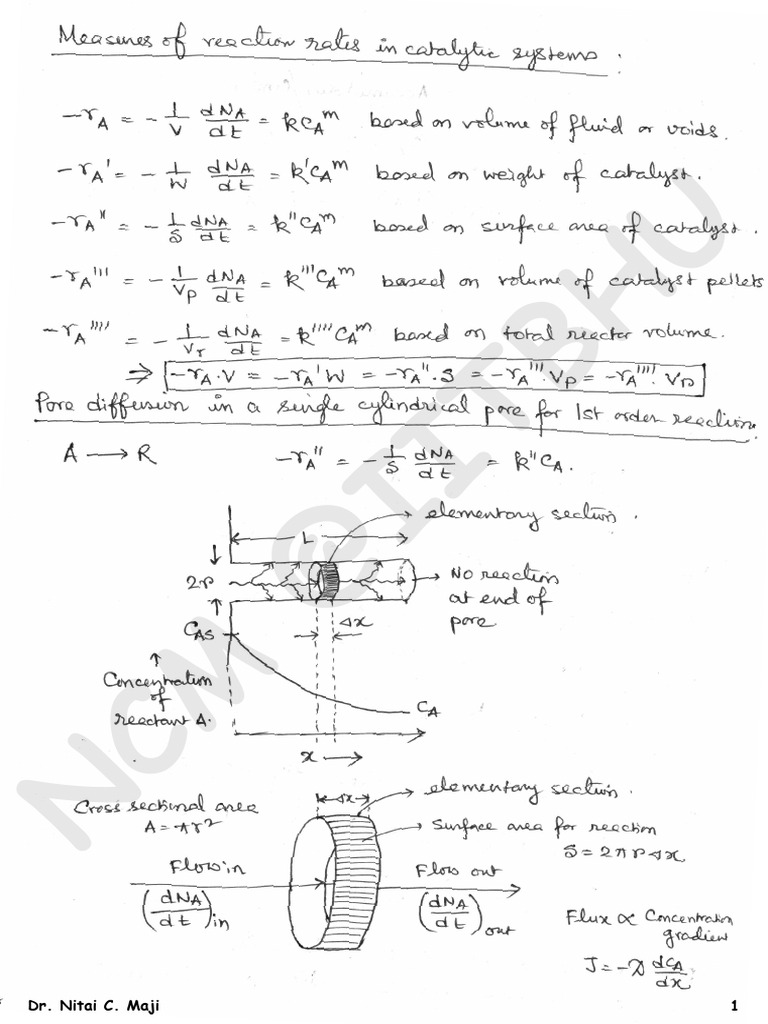 Measures of reaction rates in catalytic systems :
-rA = - 1/V dNA/dt = kCA^m based on volume of fluid or voids.
-rA' = - 1/W dNA/dt = k'CA^m based on weight of catalyst.
-rA'' = - 1/S dNA/dt = k''CA^m based on surface area of catalyst.
-rA''' = - 1/Vp dNA/dt = k'''CA^m based on volume of catalyst pellets
-rA'''' = - 1/Vr dNA/dt = k''''CA^m based on total reactor volume.
⇒ -rA·V = -rA'W = -rA''·S = -rA'''·Vp = -rA''''·Vr
Pore diffusion in a single cylindrical pore for 1st order reaction.
A → R -rA'' = - 1/S dNA/dt = k''CA.
elementary section.
L
2r
No reaction
at end of
pore
Δx
CAS
Concentration
of
reactant A.
CA
x →
Cross sectional area
A = πr²
Δx
elementary section.
surface area for reaction
S = 2πrΔx
Flow in
Flow out
(dNA/dt)in
(dNA/dt)out
Flux ∝ Concentration
gradient
J = -D dCA/dx
NCM @IITBHU
Dr. Nitai C. Maji 1